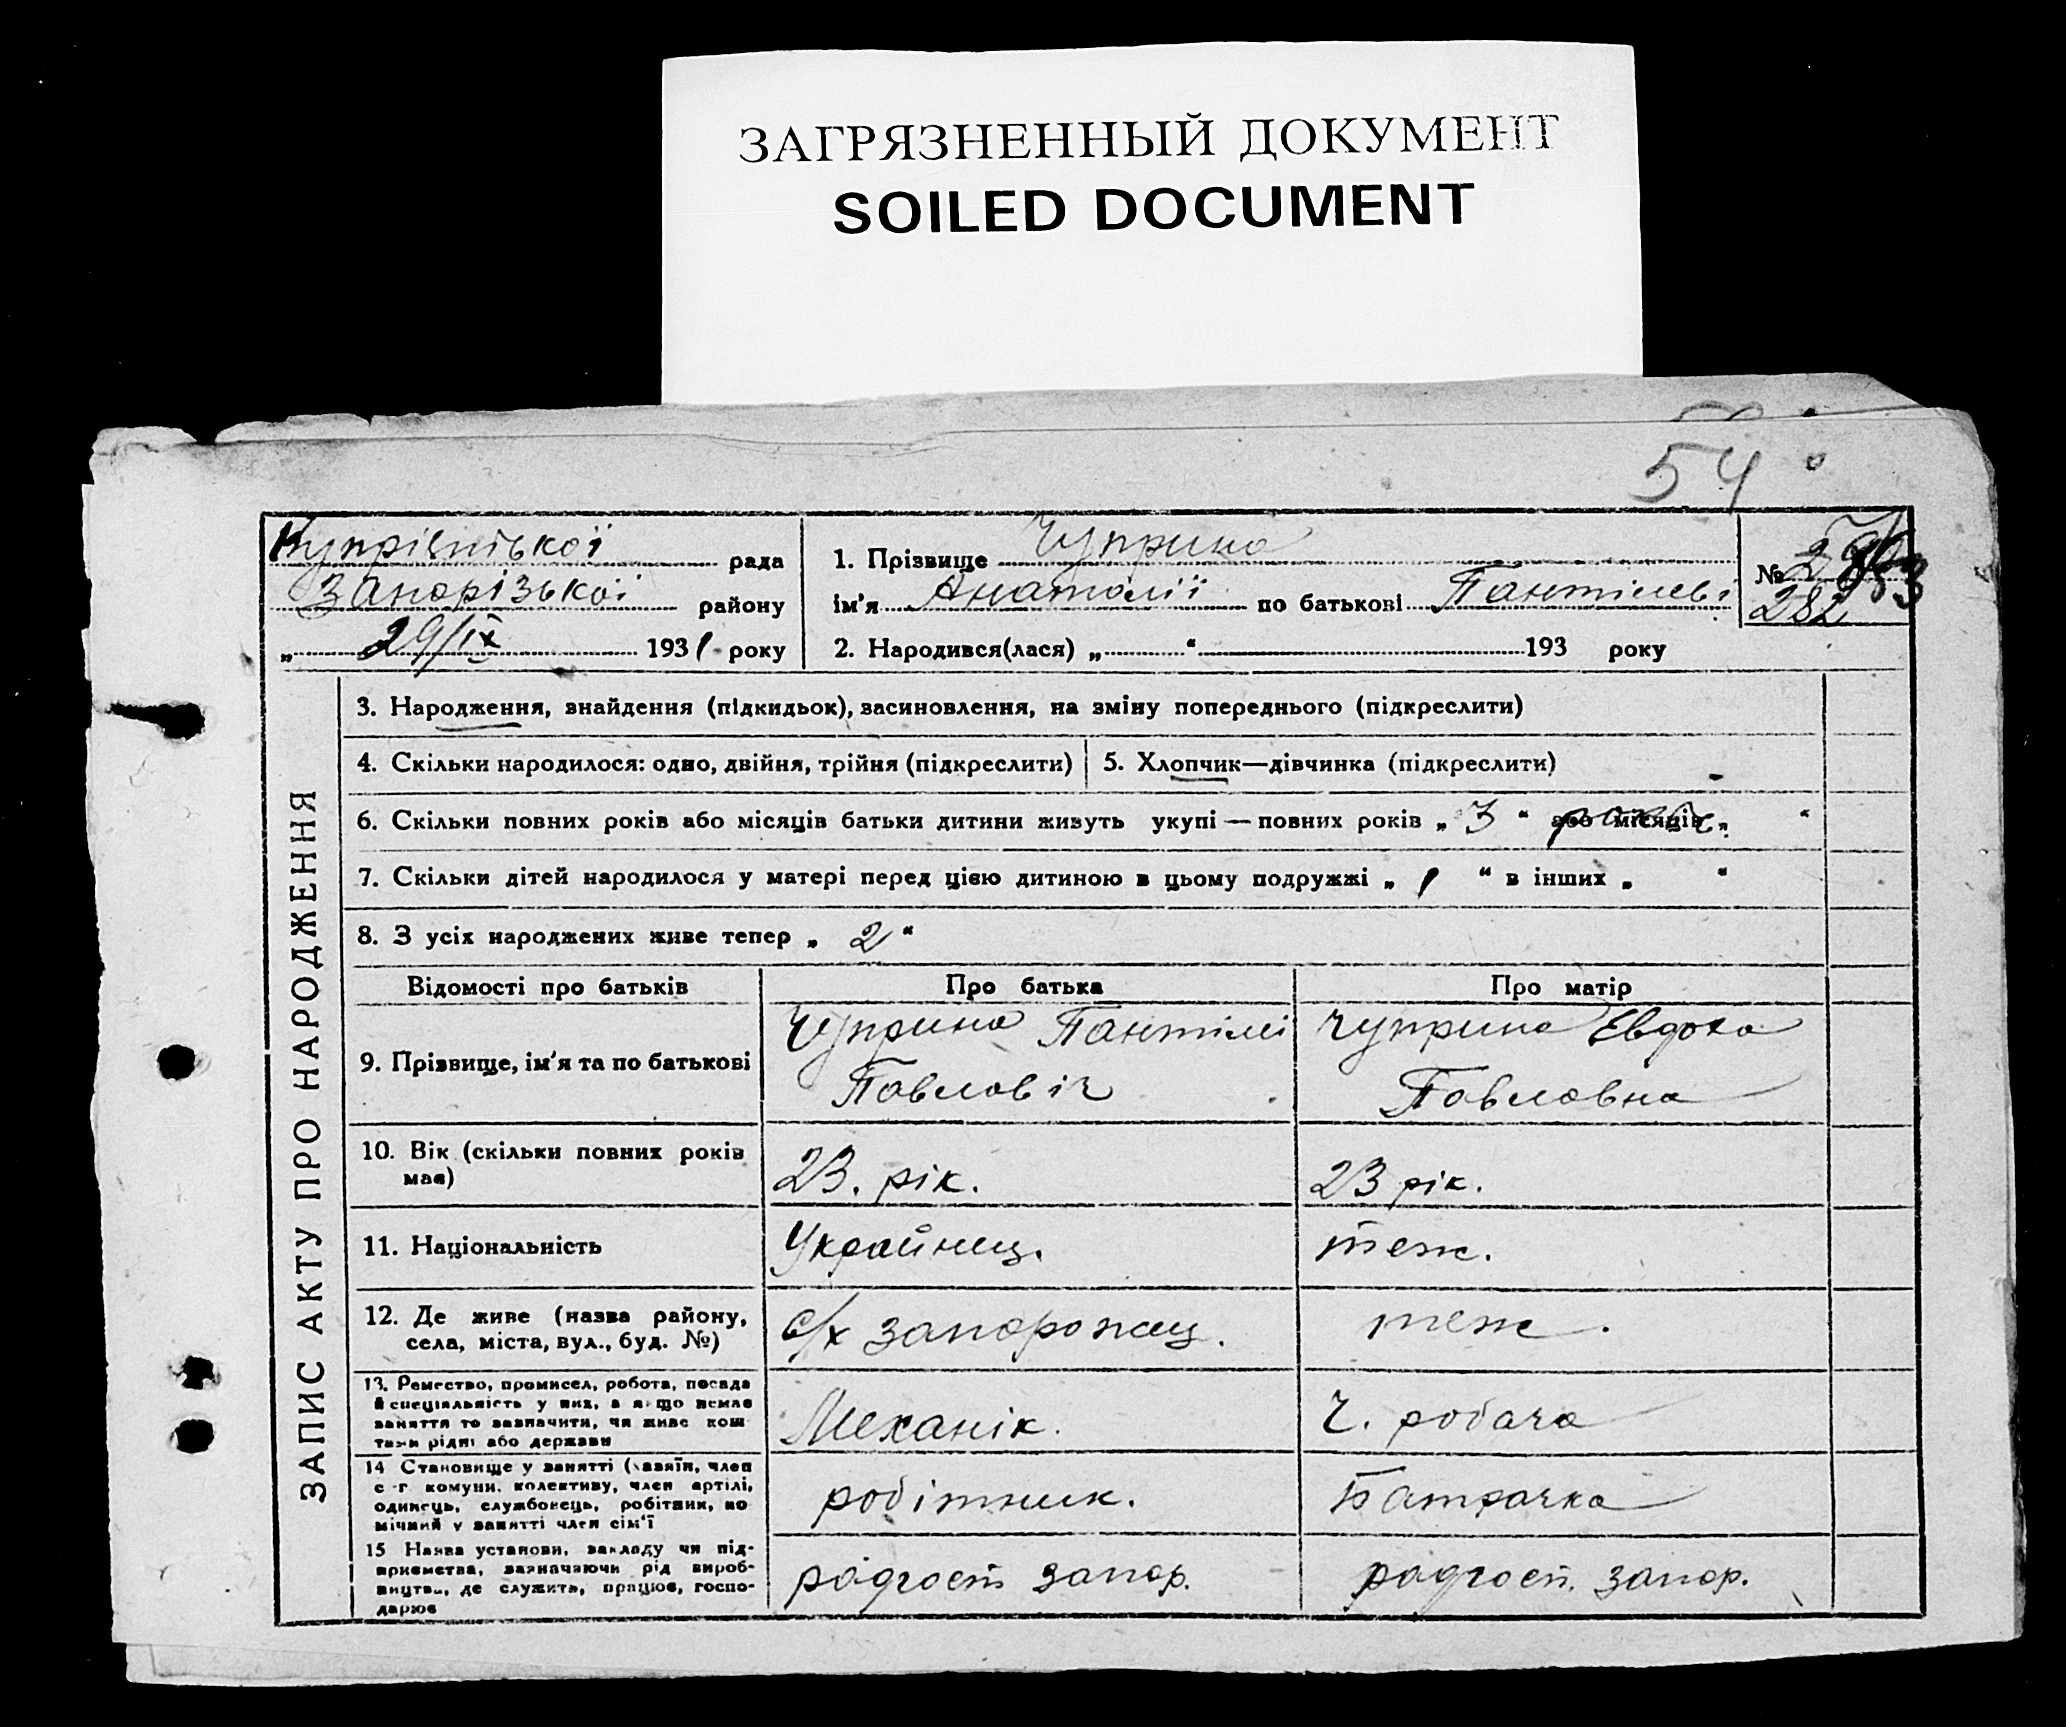 ЗАГРЯЗНЕННЫЙ ДОКУМЕНТ
SOILED DOCUMENT
54
Купріянівської рада
Запорізької району
„ 29/ІХ 1931 року
1. Прізвище Чуприна
ім'я Анатолії по батькові Пантілеві
№
282
2. Народився(лася) „ “ 193 року
ЗАПИС АКТУ ПРО НАРОДЖЕННЯ
3. Народження, знайдення (підкидьок), засиновлення, на зміну попереднього (підкреслити)
4. Скільки народилося: одно, двійня, трійня (підкреслити)
5. Хлопчик—дівчинка (підкреслити)
6. Скільки повних років або місяців батьки дитини живуть укупі — повних років „ 3 “ або місяців „ “
7. Скільки дітей народилося у матері перед цією дитиною в цьому подружжі „ 1 “ в інших „ “
8. З усіх народжених живе тепер „ 2 “
Відомості про батьків
Про батька
Про матір
9. Прізвище, ім'я та по батькові
Чуприна Пантілі
Павловіч
Чуприна Евдока
Павловна
10. Вік (скільки повних років
має)
23. рік.
23 рік.
11. Національність
Украйнец.
теж.
12. Де живе (назва району,
села, міста, вул., буд. №)
с/х Запорожец.
теж.
13. Ремество, промисел, робота, посада
й спеціяльність у них, а якщо немає
заняття то зазначити, чи живе кош
тами рідні або держави
Механік.
Ч. робача
14 Становище у занятті (хазяїн, член
с-г комуни, колективу, член артілі,
одинець, службовець, робітник, по
мічний у занятті член сім'ї
робітник.
Батрачка
15 Назва установи, закладу чи під-
приємства, зазначаючи рід вироб-
ництва, де служить, працює, госпо-
дарює
радгосп Запор.
радгосп. Запор.